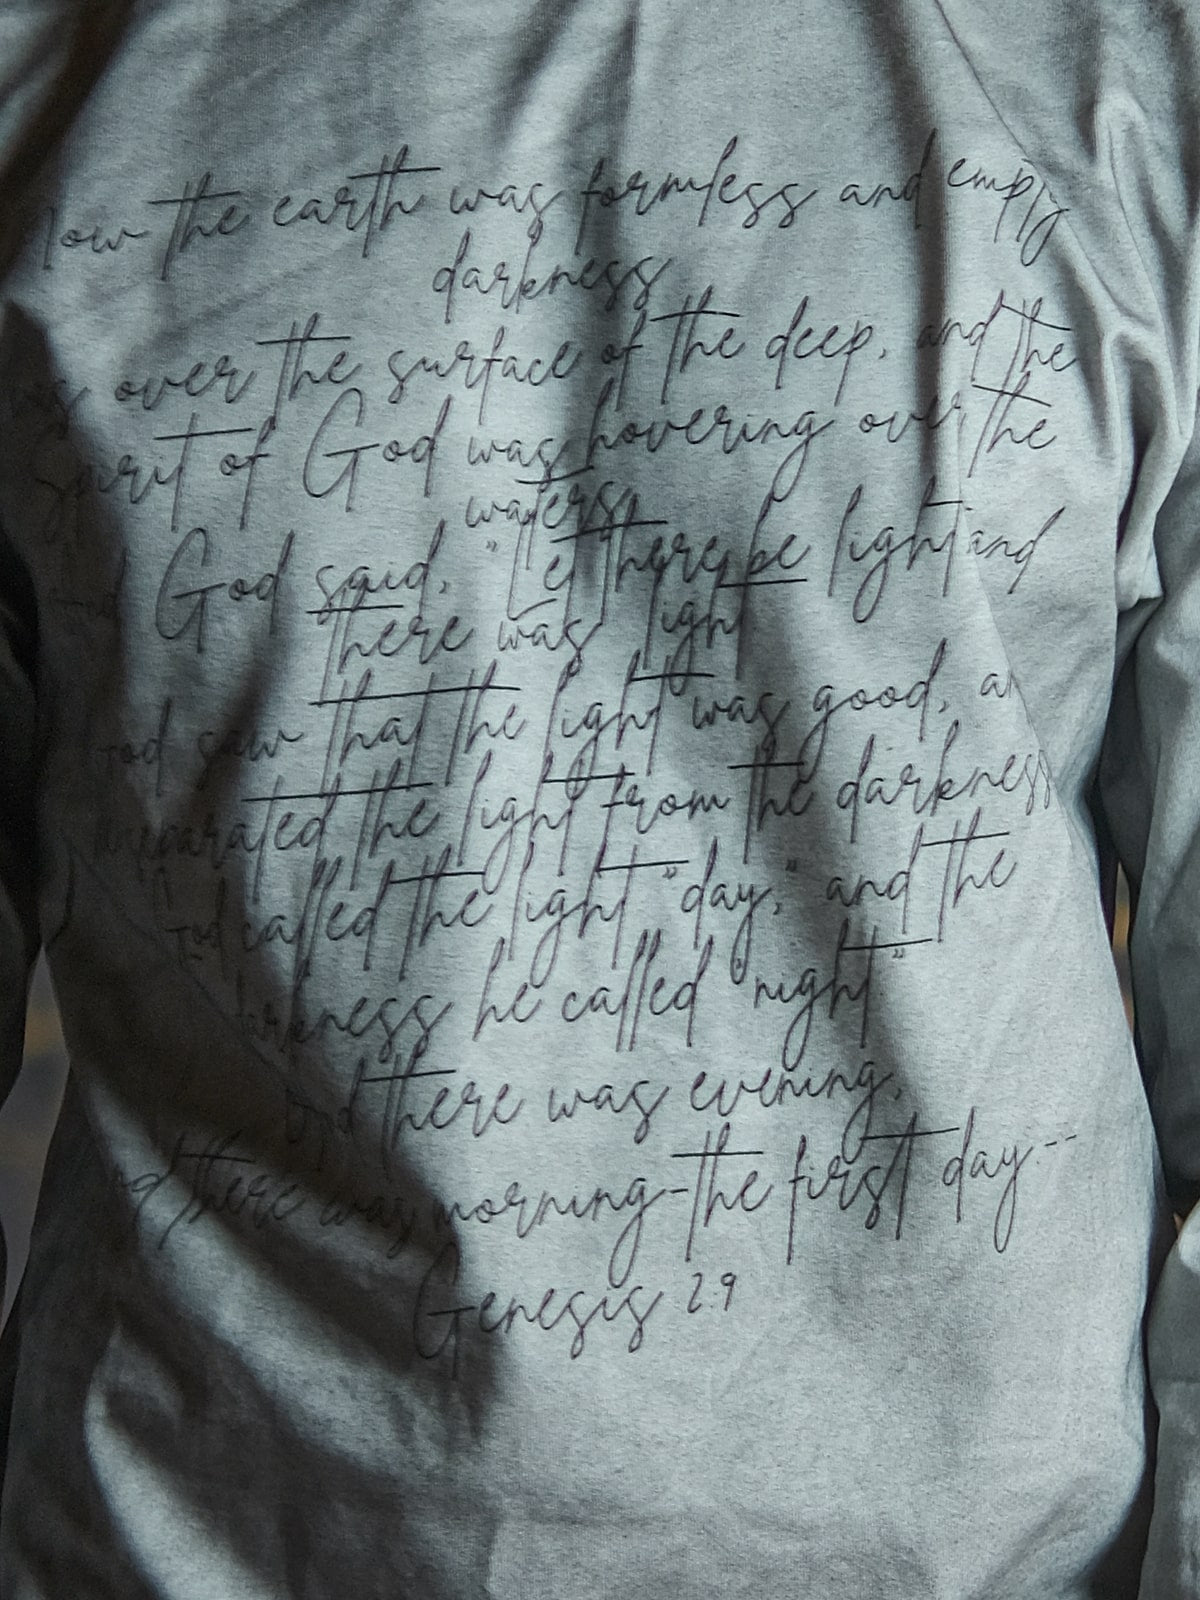 Now the earth was formless and empy
darkness
was over the surface of the deep, and the
Spirit of God was hovering over the
waters
And God said, "Let there be light and
there was light
God saw that the light was good, an
separated the light from the darkness
God called the light "day," and the
darkness he called "night"
And there was evening,
and there was morning-the first day--
Genesis 2.9